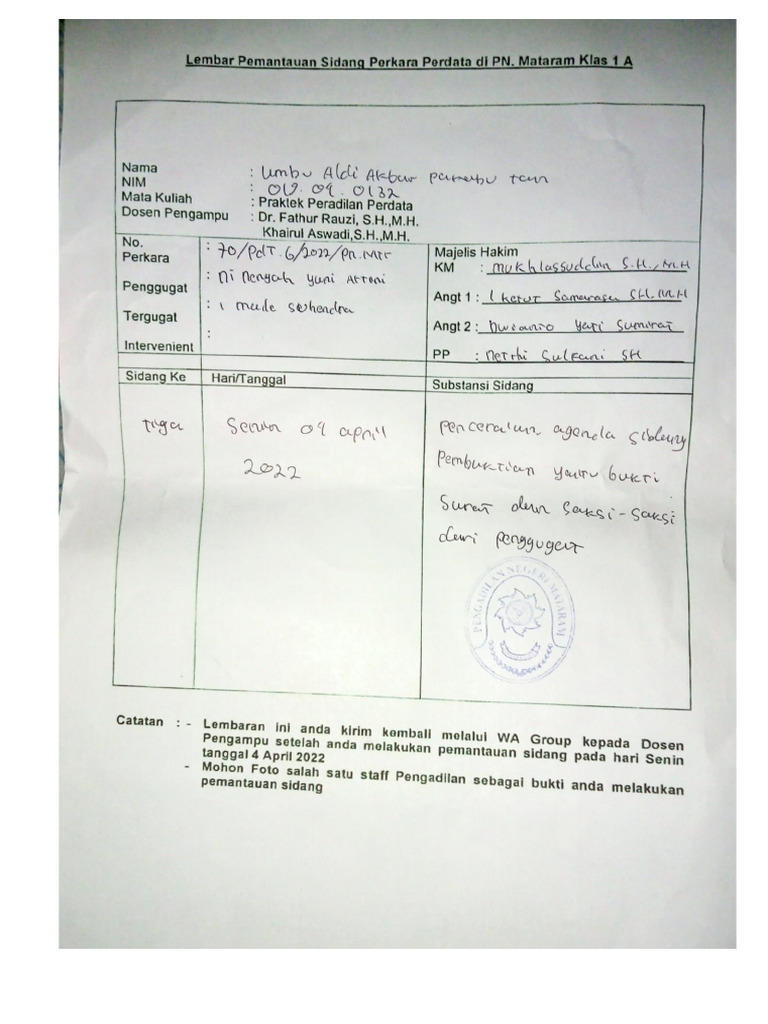 Lembar Pemantauan Sidang Perkara Perdata di PN. Mataram Klas 1 A
Nama : Umbu Aldi Akbar
NIM : 019.09.0132
Mata Kuliah : Praktek Peradilan Perdata
Dosen Pengampu : Dr. Fathur Rauzi, S.H.,M.H.
Khairul Aswadi,S.H.,M.H.
No. Perkara : 70/PdT.G/2022/PN.MTR
Penggugat : Ni Nengah Yuni
Tergugat : I made suhendra
Intervenient :
Majelis Hakim
KM : Mukhlassuddin S.H., M.H
Angt 1 : I Ketut Somanasa SH.MH
Angt 2 : Dwianto Jati Sumirat
PP : Netthi Sulfani SH
Sidang Ke
Hari/Tanggal
Substansi Sidang
tiga
Senin 04 april
2022
penceraian agenda sidang
Pembuktian yaitu bukti
Surat dan Saksi-saksi
dari penggugat
PENGADILAN NEGERI MATARAM
Catatan : - Lembaran ini anda kirim kembali melalui WA Group kepada Dosen
Pengampu setelah anda melakukan pemantauan sidang pada hari Senin
tanggal 4 April 2022
- Mohon Foto salah satu staff Pengadilan sebagai bukti anda melakukan
pemantauan sidang